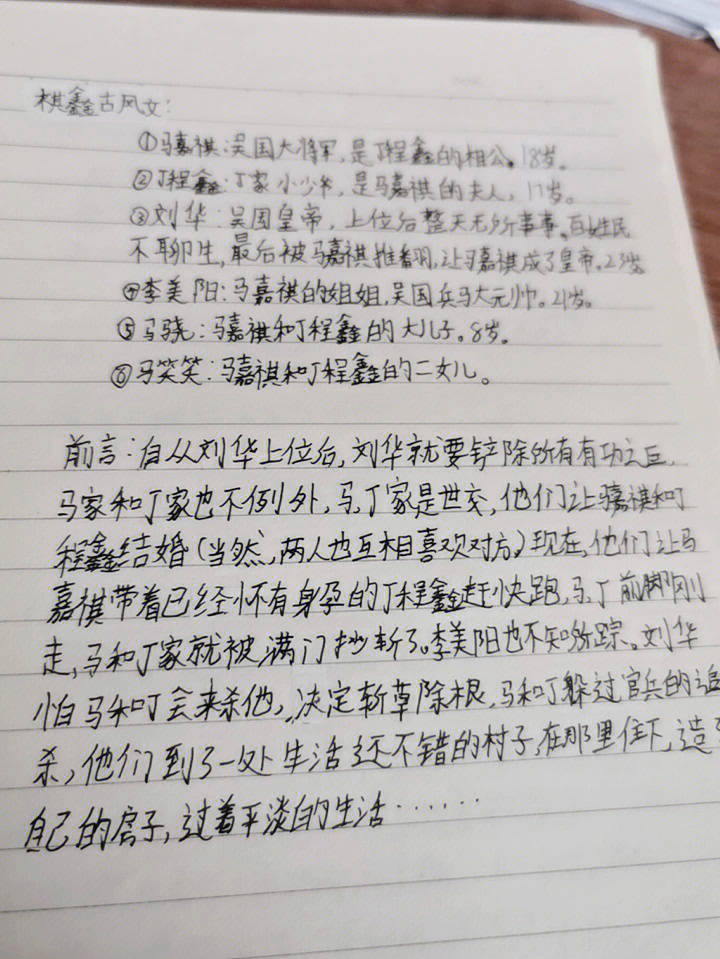 棋鑫古风文:
①马嘉祺:吴国大将军,是丁程鑫的相公。18岁。
②丁程鑫:丁家小少爷,是马嘉祺的夫人,17岁。
③刘华:吴国皇帝,上位后整天无所事事。百姓民
不聊生,最后被马嘉祺推翻,让马嘉祺成了皇帝。23岁
④李美阳:马嘉祺的姐姐,吴国兵马大元帅。21岁。
⑤马骁:马嘉祺和丁程鑫的大儿子。8岁。
⑥马笑笑:马嘉祺和丁程鑫的二女儿。
前言:自从刘华上位后,刘华就要铲除所有有功之臣,
马家和丁家也不例外,马,丁家是世交,他们让马嘉祺和丁
程鑫结婚(当然,两人也互相喜欢对方)现在,他们让马
嘉祺带着已经怀有身孕的丁程鑫赶快跑,马,丁前脚刚
走,马和丁家就被满门抄斩了。李美阳也不知所踪。刘华
怕马和丁会来杀他,决定斩草除根,马和丁躲过官兵的追
杀,他们到了一处生活还不错的村子,在那里住下,造了
自己的房子,过着平淡的生活……